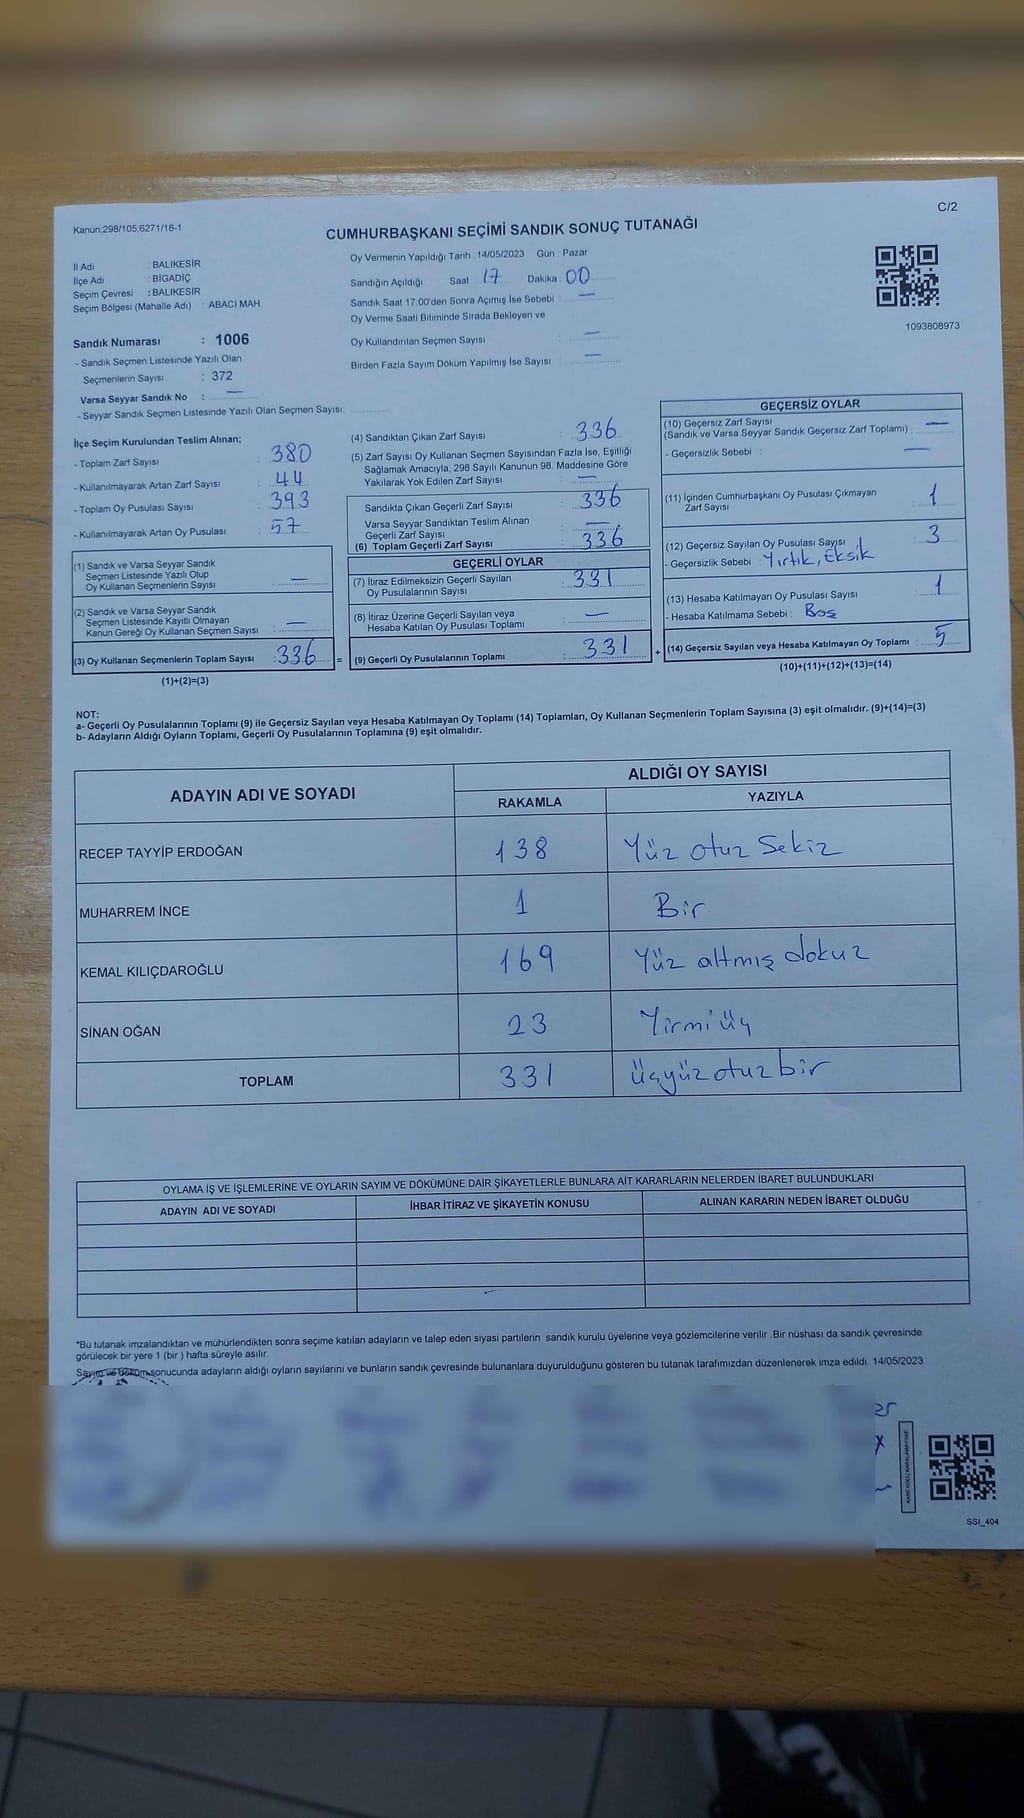 C/2
Kanun:298/105,6271/16-1
CUMHURBAŞKANI SEÇİMİ SANDIK SONUÇ TUTANAĞI
İl Adı : BALIKESİR
İlçe Adı : BİGADİÇ
Seçim Çevresi : BALIKESİR
Seçim Bölgesi (Mahalle Adı) : ABACI MAH.
Sandık Numarası : 1006
- Sandık Seçmen Listesinde Yazılı Olan
Seçmenlerin Sayısı : 372
Varsa Seyyar Sandık No : —
- Seyyar Sandık Seçmen Listesinde Yazılı Olan Seçmen Sayısı:
Oy Vermenin Yapıldığı Tarih : 14/05/2023 Gün : Pazar
Sandığın Açıldığı Saat 17 Dakika 00
Sandık Saat 17:00'den Sonra Açımış İse Sebebi : —
Oy Verme Saati Bitiminde Sırada Bekleyen ve
Oy Kullandırılan Seçmen Sayısı : —
Birden Fazla Sayım Döküm Yapılmış İse Sayısı : —
1093808973
İlçe Seçim Kurulundan Teslim Alınan;
- Toplam Zarf Sayısı : 380
- Kullanılmayarak Artan Zarf Sayısı : 44
- Toplam Oy Pusulası Sayısı : 393
- Kullanılmayarak Artan Oy Pusulası : 57
(1) Sandık ve Varsa Seyyar Sandık
Seçmen Listesinde Yazılı Olup
Oy Kullanan Seçmenlerin Sayısı : —
(2) Sandık ve Varsa Seyyar Sandık
Seçmen Listesinde Kayıtlı Olmayan
Kanun Gereği Oy Kullanan Seçmen Sayısı : —
(3) Oy Kullanan Seçmenlerin Toplam Sayısı : 336 =
(1)+(2)=(3)
(4) Sandıktan Çıkan Zarf Sayısı : 336
(5) Zarf Sayısı Oy Kullanan Seçmen Sayısından Fazla İse, Eşitliği
Sağlamak Amacıyla, 298 Sayılı Kanunun 98. Maddesine Göre
Yakılarak Yok Edilen Zarf Sayısı : —
Sandıkta Çıkan Geçerli Zarf Sayısı : 336
Varsa Seyyar Sandıktan Teslim Alınan
Geçerli Zarf Sayısı : —
(6) Toplam Geçerli Zarf Sayısı : 336
GEÇERLİ OYLAR
(7) İtiraz Edilmeksizin Geçerli Sayılan
Oy Pusulalarının Sayısı : 331
(8) İtiraz Üzerine Geçerli Sayılan veya
Hesaba Katılan Oy Pusulası Toplamı : —
(9) Geçerli Oy Pusulalarının Toplamı : 331 +
GEÇERSİZ OYLAR
(10) Geçersiz Zarf Sayısı
(Sandık ve Varsa Seyyar Sandık Geçersiz Zarf Toplamı) : —
- Geçersizlik Sebebi : —
(11) İçinden Cumhurbaşkanı Oy Pusulası Çıkmayan
Zarf Sayısı : 1
(12) Geçersiz Sayılan Oy Pusulası Sayısı : 3
- Geçersizlik Sebebi : Yırtık, Eksik
(13) Hesaba Katılmayan Oy Pusulası Sayısı : 1
- Hesaba Katılmama Sebebi : Boş
(14) Geçersiz Sayılan veya Hesaba Katılmayan Oy Toplamı : 5
(10)+(11)+(12)+(13)=(14)
NOT:
a- Geçerli Oy Pusulalarının Toplamı (9) ile Geçersiz Sayılan veya Hesaba Katılmayan Oy Toplamı (14) Toplamları, Oy Kullanan Seçmenlerin Toplam Sayısına (3) eşit olmalıdır. (9)+(14)=(3)
b- Adayların Aldığı Oyların Toplamı, Geçerli Oy Pusulalarının Toplamına (9) eşit olmalıdır.
ADAYIN ADI VE SOYADI
ALDIĞI OY SAYISI
RAKAMLA YAZIYLA
RECEP TAYYİP ERDOĞAN 138 Yüz otuz Sekiz
MUHARREM İNCE 1 Bir
KEMAL KILIÇDAROĞLU 169 Yüz altmış dokuz
SİNAN OĞAN 23 Yirmi üç
TOPLAM 331 üçyüz otuz bir
OYLAMA İŞ VE İŞLEMLERİNE VE OYLARIN SAYIM VE DÖKÜMÜNE DAİR ŞİKAYETLERLE BUNLARA AİT KARARLARIN NELERDEN İBARET BULUNDUKLARI
ADAYIN ADI VE SOYADI İHBAR İTİRAZ VE ŞİKAYETİN KONUSU ALINAN KARARIN NEDEN İBARET OLDUĞU
*Bu tutanak imzalandıktan ve mühürlendikten sonra seçime katılan adayların ve talep eden siyasi partilerin sandık kurulu üyelerine veya gözlemcilerine verilir .Bir nüshası da sandık çevresinde
görülecek bir yere 1 (bir ) hafta süreyle asılır.
Sayım ve döküm sonucunda adayların aldığı oyların sayılarını ve bunların sandık çevresinde bulunanlara duyurulduğunu gösteren bu tutanak tarafımızdan düzenlenerek imza edildi. 14/05/2023
SSI_404